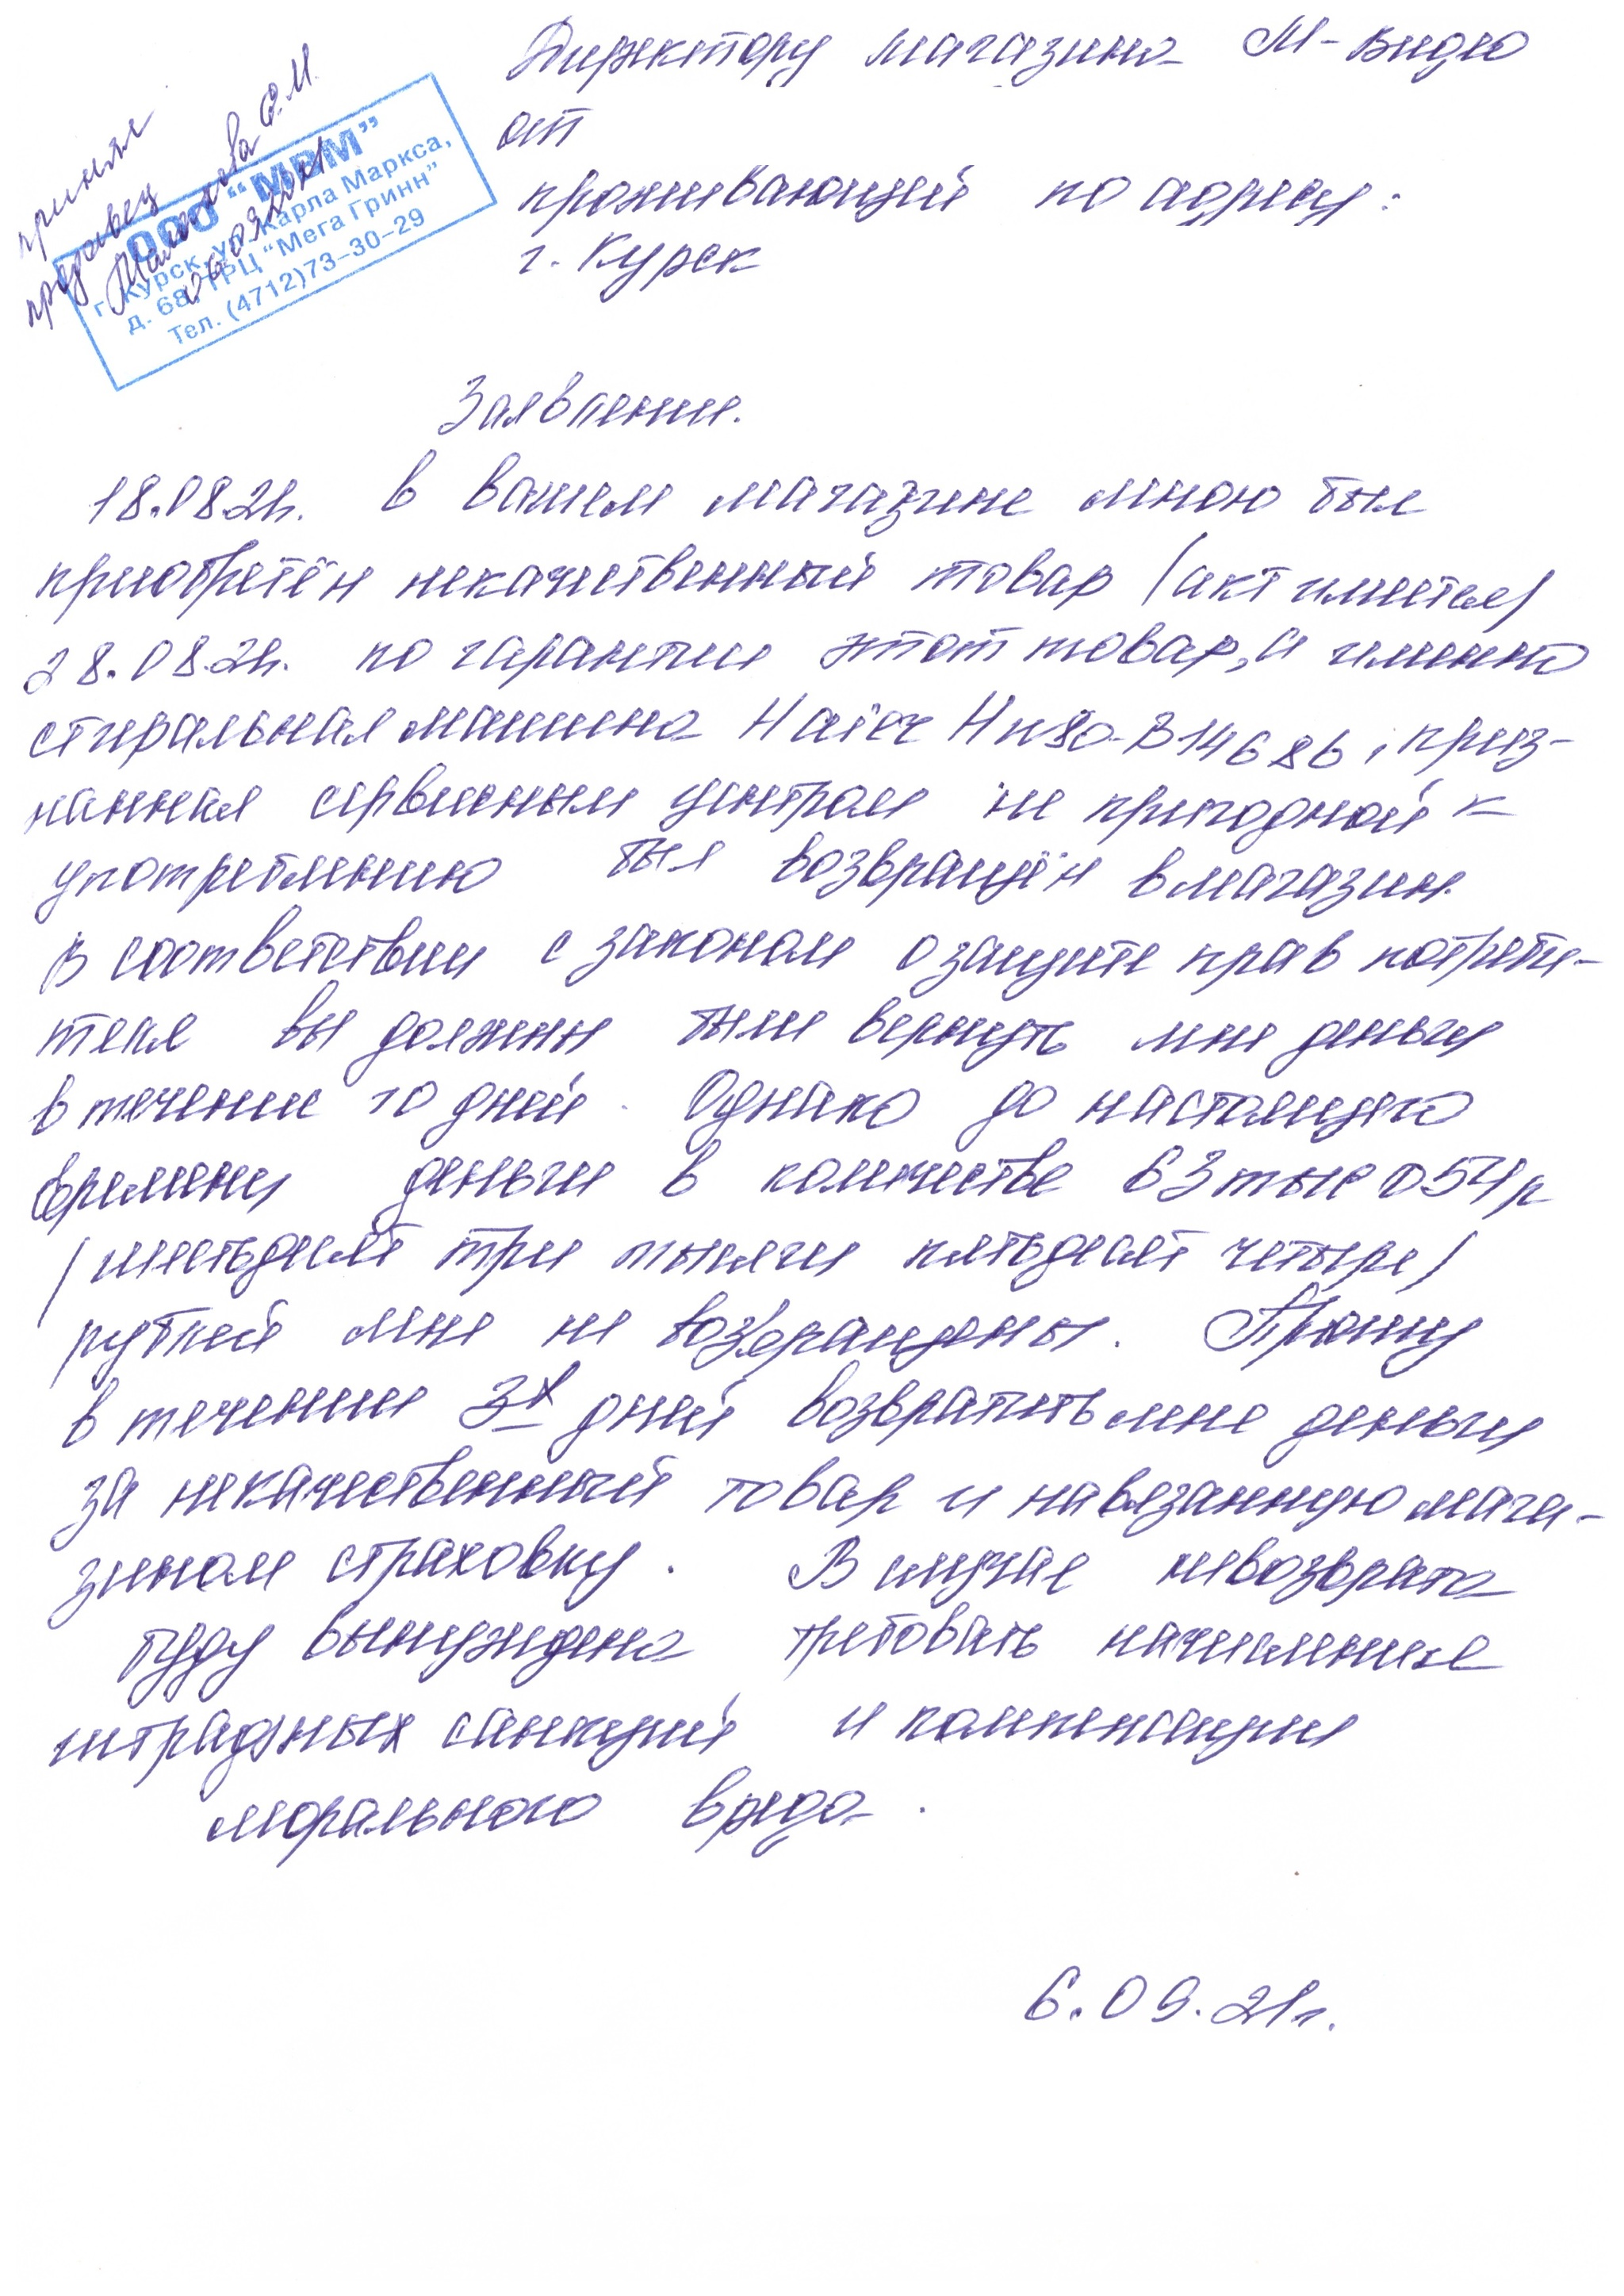 Директору магазина М-видео
от
проживающей по адресу:
г. Курск
принял
продавец
ООО "МВМ"
г. Курск, ул. Карла Маркса,
д. 68, ТРЦ "Мега Гринн"
Тел. (4712)73-30-29
Заявление.
18.08.21г. в вашем магазине мною был
приобретён некачественный товар (акт имеется)
28.08.21г. по гарантии этот товар, а именно
стиральная машина Haier HW80-B14686, приз-
нанная сервисным центром не пригодной к
употреблению был возвращён в магазин.
В соответствии с законом о защите прав потреби-
теля вы должны были вернуть мне деньги
в течении 10 дней. Однако до настоящего
времени деньги в количестве 63 тыс 054 р
(шестьдесят три тысячи пятьдесят четыре)
рублей мне не возвращены. Прошу
в течении 3х дней возвратить мне деньги
за некачественный товар и навязанную мага-
зином страховку. В случае невозврата
буду вынуждена требовать начисление
штрафных санкций и компенсации
морального вреда.
6.09.21г.